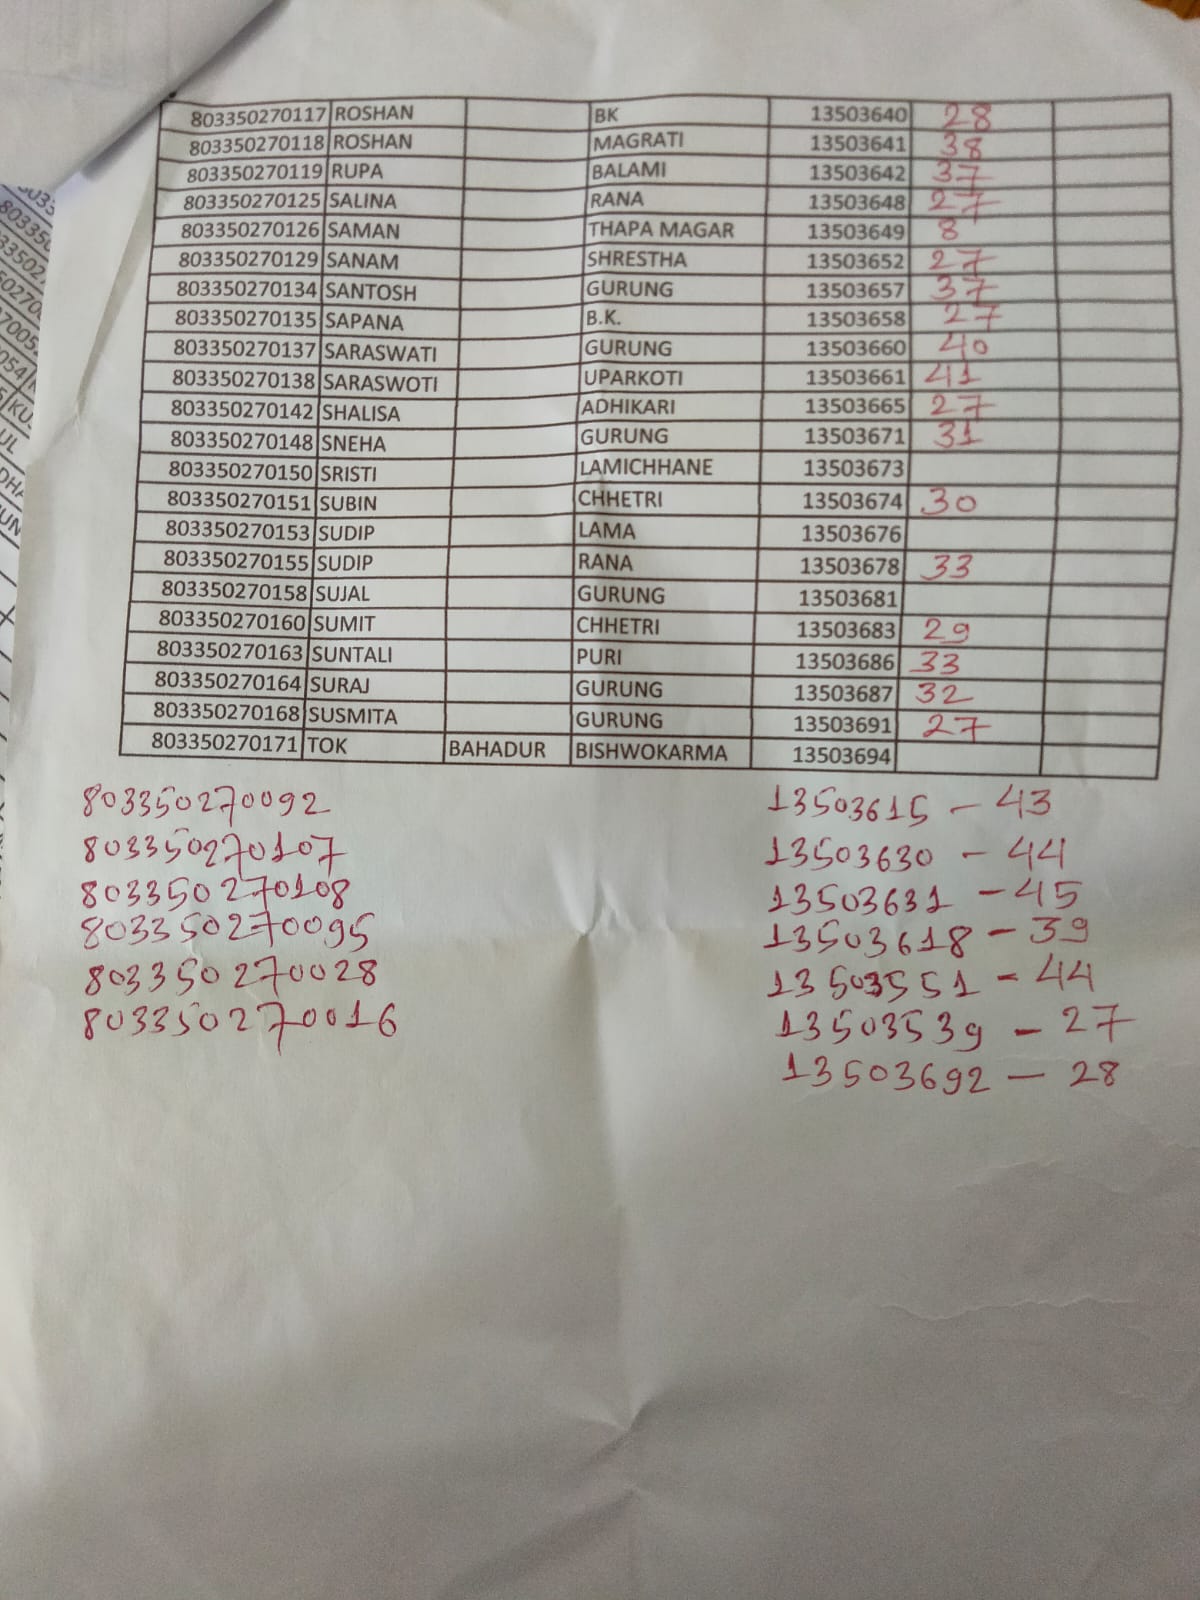 803350270117 ROSHAN BK 13503640 28
803350270118 ROSHAN MAGRATI 13503641 38
803350270119 RUPA BALAMI 13503642 37
803350270125 SALINA RANA 13503648 27
803350270126 SAMAN THAPA MAGAR 13503649 8
803350270129 SANAM SHRESTHA 13503652 27
803350270134 SANTOSH GURUNG 13503657 37
803350270135 SAPANA B.K. 13503658 27
803350270137 SARASWATI GURUNG 13503660 40
803350270138 SARASWOTI UPARKOTI 13503661 41
803350270142 SHALISA ADHIKARI 13503665 27
803350270148 SNEHA GURUNG 13503671 31
803350270150 SRISTI LAMICHHANE 13503673
803350270151 SUBIN CHHETRI 13503674 30
803350270153 SUDIP LAMA 13503676
803350270155 SUDIP RANA 13503678 33
803350270158 SUJAL GURUNG 13503681
803350270160 SUMIT CHHETRI 13503683 29
803350270163 SUNTALI PURI 13503686 33
803350270164 SURAJ GURUNG 13503687 32
803350270168 SUSMITA GURUNG 13503691 27
803350270171 TOK BAHADUR BISHWOKARMA 13503694
803350270092 13503615 - 43
803350270107 13503630 - 44
803350270108 13503631 - 45
803350270095 13503618 - 39
803350270028 13503551 - 44
803350270016 13503539 - 27
13503692 - 28